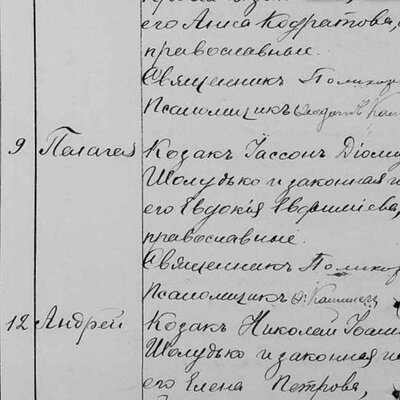 его Анна Кодратова,
православные.
Священникъ
Псаломщикъ
9 Палагея Козакъ Іассонъ Діоми
Шолудько и законная
его Евдокія Евфиміева,
православные.
Священникъ
Псаломщикъ
12 Андрей Козакъ Николай Іоан
Шолудько и законная
его Елена Петрова,